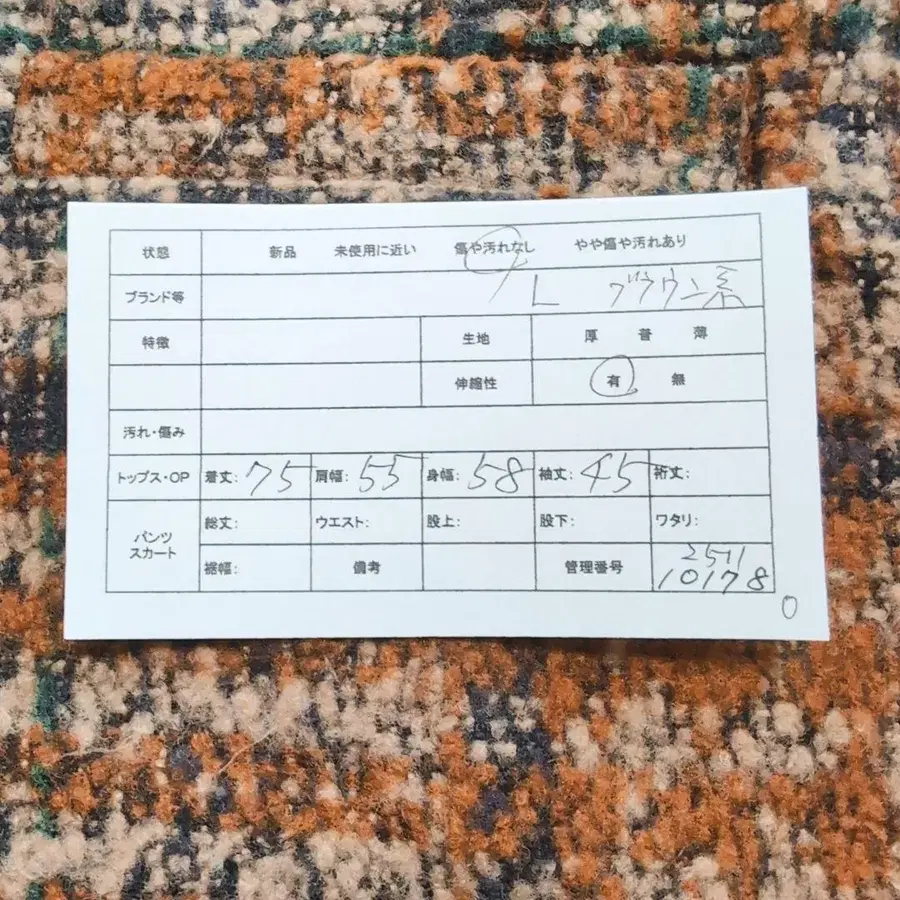 状態 新品 未使用に近い 傷や汚れなし やや傷や汚れあり
ブランド等 L ブラウン系
特徴 生地 厚 普 薄
伸縮性 有 無
汚れ・傷み
トップス・OP 着丈:75 肩幅:55 身幅:58 袖丈:45 裄丈:
パンツ スカート 総丈: ウエスト: 股上: 股下: ワタリ:
裾幅: 備考 管理番号 2511
10178
0